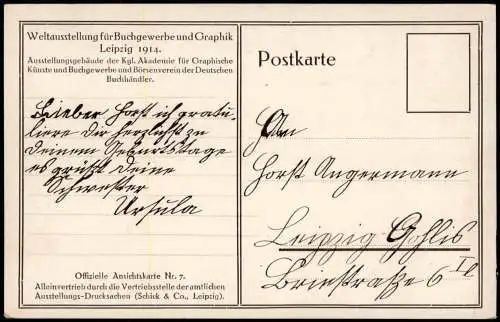 Weltausstellung für Buchgewerbe und Graphik
Leipzig 1914.
Ausstellungsgebäude der Kgl. Akademie für Graphische
Künste und Buchgewerbe und Börsenverein der Deutschen
Buchhändler.
Lieber Horst ich gratu
liere dir herzlichst zu
deinem Geburtstage
es grüßt deine
Schwester
Ursula
Offizielle Ansichtskarte Nr. 7.
Alleinvertrieb durch die Vertriebsstelle der amtlichen
Ausstellungs-Drucksachen (Schick & Co., Leipzig).
Postkarte
An
Horst Angermann
Leipzig Gohlis
6 I